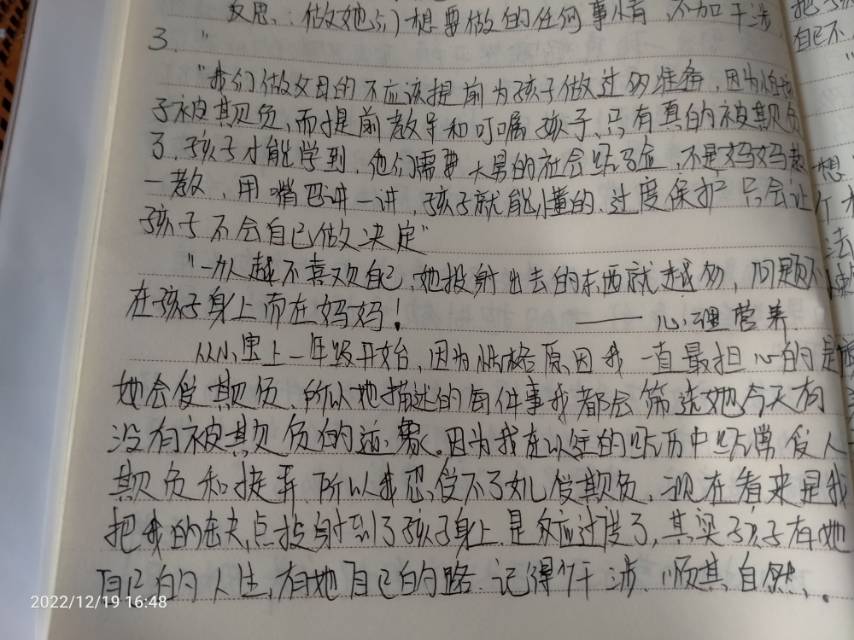 反思：做她们想要做的任何事情，不加干涉，
3. "
"我们做父母的不应该提前为孩子做过多准备，因为怕孩
子被欺负，而提前教导和叮嘱孩子，只有真的被欺负
了，孩子才能学到，他们需要大量的社会经验，不是妈妈教
一教，用嘴巴讲一讲，孩子就能懂的，过度保护只会让
孩子不会自己做决定"
"一个人越不喜欢自己，她投射出去的东西就越多，问题不
在孩子身上而在妈妈！
——心理营养
从小宝上一年级开始，因为性格原因我一直最担心的是
她会受欺负，所以她描述的每件事我都会筛选她今天有
没有被欺负的迹象。因为我在以往的经历中经常受人
欺负和捉弄所以我忍受不了女儿受欺负，现在看来是我
把我的缺点投射到了孩子身上，是反应过度了，其实孩子有她
自己的人生，有她自己的路，记得不干涉，顺其自然。
把
自己不
想
个
去
2022/12/19 16:48